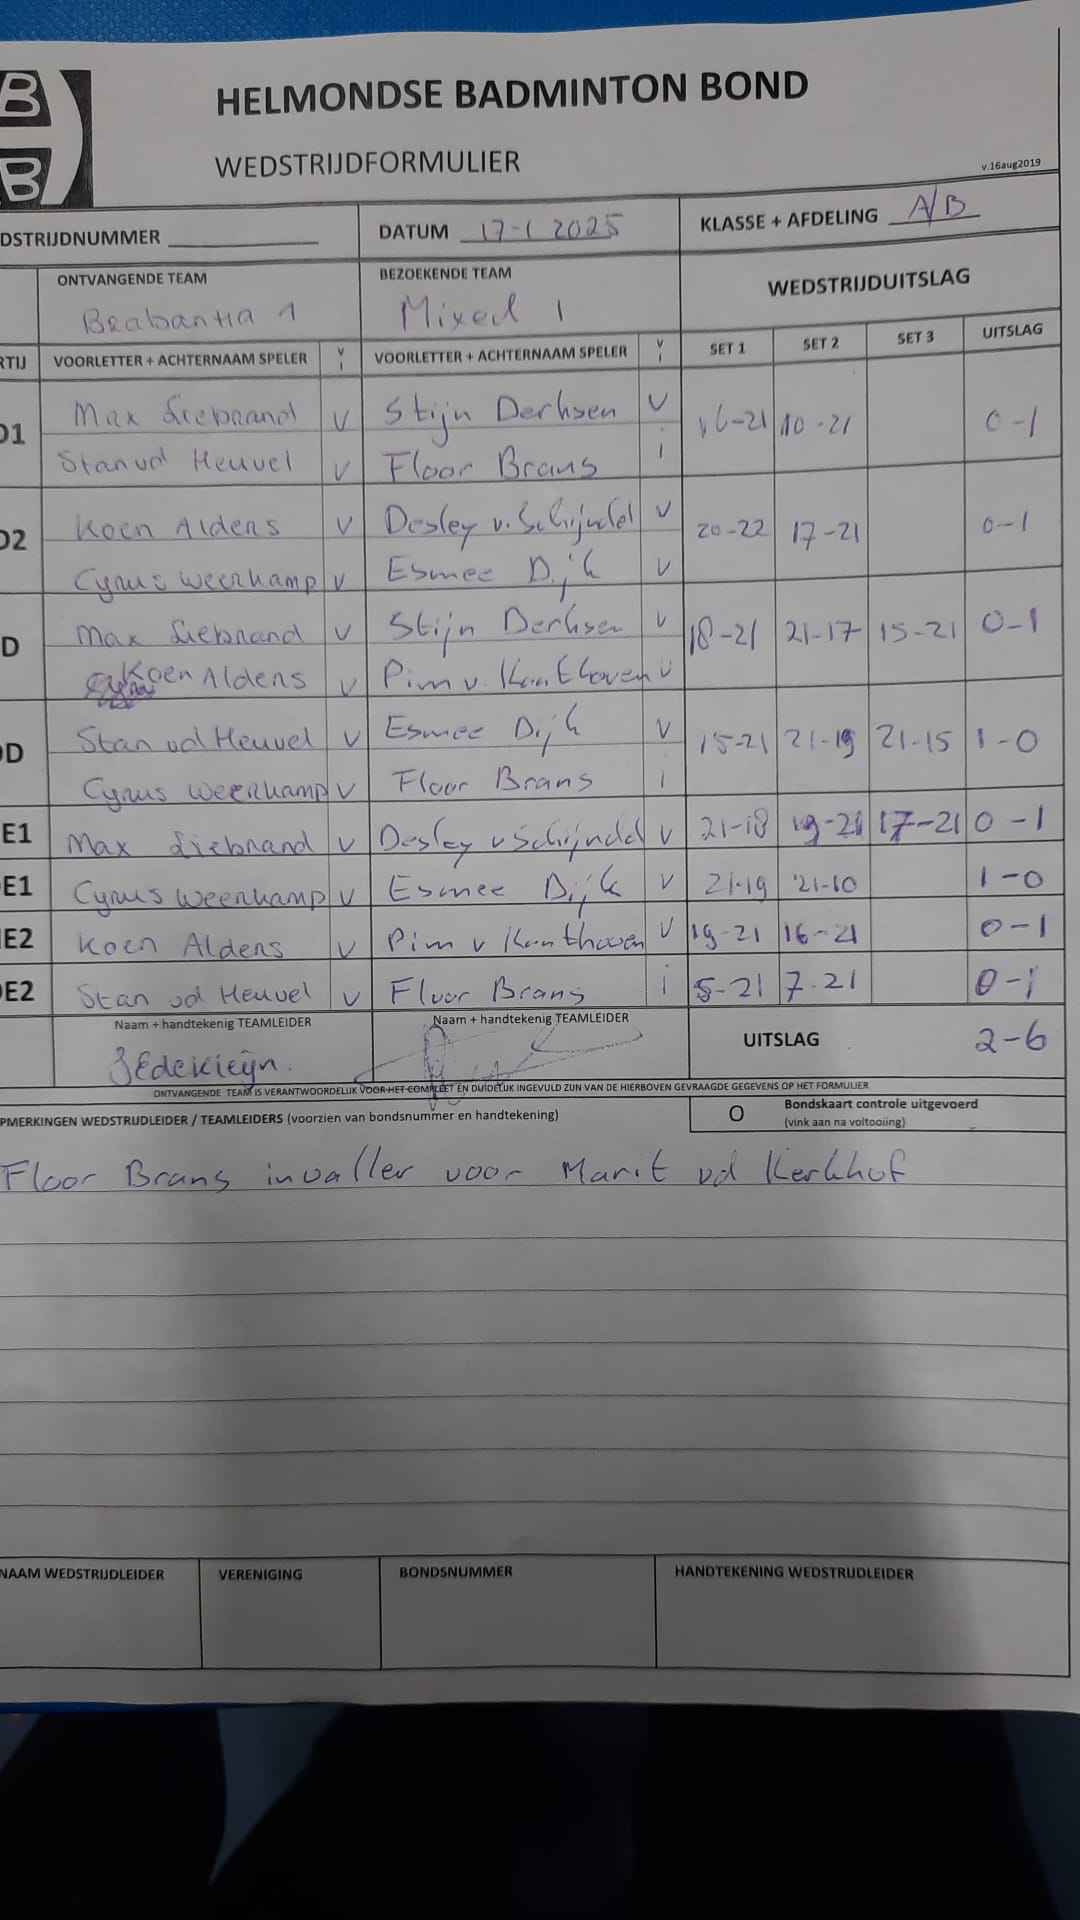 B
B
HELMONDSE BADMINTON BOND
WEDSTRIJDFORMULIER
v.16aug2019
DSTRIJDNUMMER
DATUM 17-1 2025
KLASSE + AFDELING A/B
ONTVANGENDE TEAM
BEZOEKENDE TEAM
WEDSTRIJDUITSLAG
Brabantia 1
Mixed 1
RTIJ VOORLETTER + ACHTERNAAM SPELER V I VOORLETTER + ACHTERNAAM SPELER V I SET 1 SET 2 SET 3 UITSLAG
D1 Max Liebrand V Stijn Derksen V 16-21 10-21 0-1
Stan vd Heuvel V Floor Brans i
D2 Koen Alders V Desley v. Schijndel V 20-22 17-21 0-1
Cyrus Weerkamp V Esmee Dijk V
D Max Liebrand V Stijn Derksen V 18-21 21-17 15-21 0-1
Koen Alders V Pim v. Kanthoven V
D Stan vd Heuvel V Esmee Dijk V 15-21 21-19 21-15 1-0
Cyrus Weerkamp V Floor Brans i
E1 Max Liebrand V Desley v Schijndel V 21-18 19-21 17-21 0-1
E1 Cyrus Weerkamp V Esmee Dijk V 21-19 21-10 1-0
E2 Koen Alders V Pim v Kanthoven V 19-21 16-21 0-1
E2 Stan vd Heuvel V Floor Brans i 8-21 7-21 0-1
Naam + handtekenig TEAMLEIDER
Naam + handtekenig TEAMLEIDER
UITSLAG 2-6
ONTVANGENDE TEAM IS VERANTWOORDELIJK VOOR HET COMPLEET EN DUIDELIJK INGEVULD ZIJN VAN DE HIERBOVEN GEVRAAGDE GEGEVENS OP HET FORMULIER
PMERKINGEN WEDSTRIJDLEIDER / TEAMLEIDERS (voorzien van bondsnummer en handtekening)
O Bondskaart controle uitgevoerd
(vink aan na voltooiing)
Floor Brans invaller voor Marit vd Kerkhof
NAAM WEDSTRIJDLEIDER
VERENIGING
BONDSNUMMER
HANDTEKENING WEDSTRIJDLEIDER